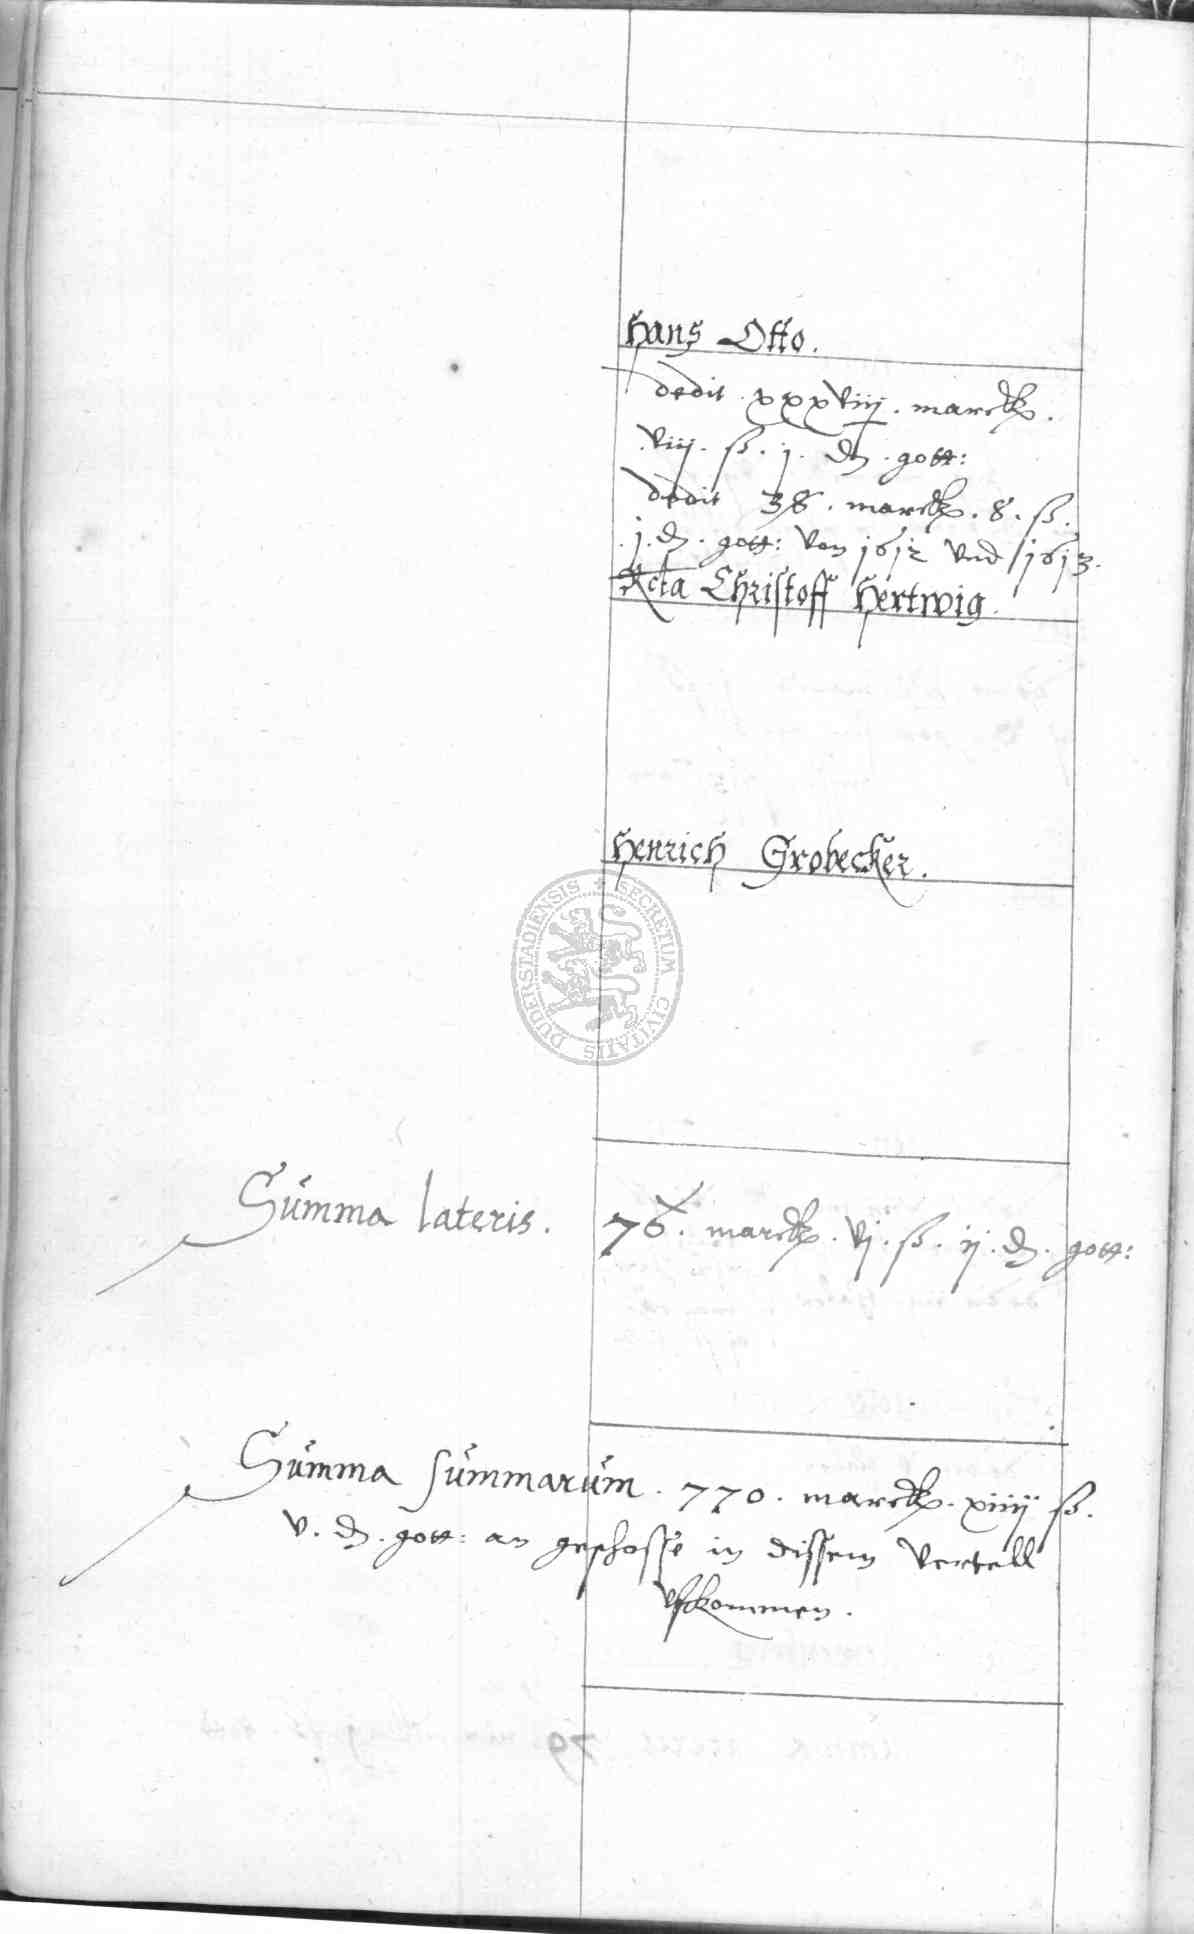 Hans Otto.
dedit xxxviij. marck.
viij. ß. j. ₰. gott:
dedit 38. marck. 8. ß.
j. ₰. gott: von 1612 vnd 1613.
Relicta Christoff Hertwig.
Henrich Grobecker.
SECRETUM CIVITATIS DUDERSTADIENSIS
Summa lateris. 76. marck. vj. ß. ij. ₰. gott:
Summa summarum. 770. marck. xiiij ß.
v. ₰. gott: an geschosse in dissem vertell
vfkommen.